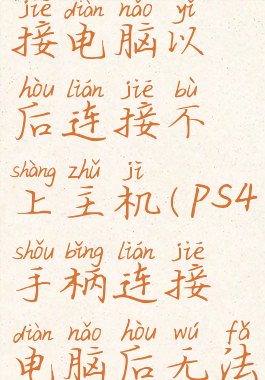 jiē diàn nǎo yǐ
接电脑以
hòu lián jiē bù
后连接不
shàng zhǔ jī
上主机(PS4
shǒu bǐng lián jiē
手柄连接
diàn nǎo hòu wú fǎ
电脑后无法